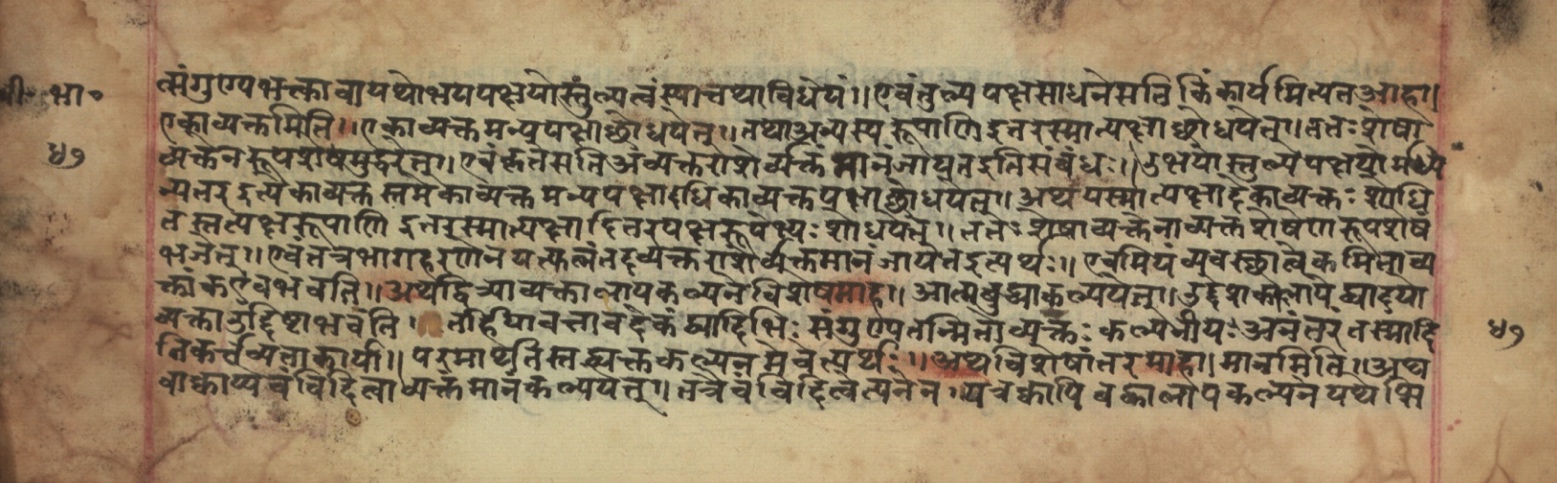 वी भा॰
त्संगुण्यभक्त्वावायथोभयपक्षयोस्तुल्यत्वंस्यात्तथाविधेयं॥एवंतुल्यपक्षसाधनेसतिकिंकार्यमित्यतआहा।
एकाव्यक्तमिति॥एकाव्यक्तमन्यपक्षाछोधयेत्॥तथाअन्यस्यरूपाणिइतरस्मात्पक्षाछोधयेत्॥ततःशेषा
व्यक्तेनरूपशेषमुद्धरेत्॥एवंकृतेसतिअव्यक्तराशेर्व्यक्तंमानंजायतइतिसंबंधः॥उभयोस्तुल्यपक्षयोर्मध्ये
न्यतरइत्येकाव्यक्तस्तमेकाव्यक्तमन्यपक्षादधिकाव्यक्तपक्षाछोधयेत्॥अथयस्मात्पक्षादेकाव्यक्तःशोधि
तस्तत्पक्षरूपाणिइतरस्मात्पक्षादितरपक्षरूपेभ्यःशोधयेत्॥ततःशेषाव्यक्तेनाव्यक्तशेषेणरूपशेषं
भजेत्॥एवंतत्रभागहरणेनयत्फलंतदव्यक्तराशेर्व्यक्तमानंजायतेइत्यर्थः॥एवमियंव्यवस्छात्वेकमितोव्य
क्तांकएवभवति॥अथद्वित्र्याव्यक्तालापकल्पनेविशेषमाह॥आत्मबुध्याकल्पयेत्॥उद्देशकालापेद्व्यादयो
व्यक्ताउद्दिष्टाभवंति।तर्हियावत्तावदेकंद्व्यादिभिःसंगुण्यतन्मितोव्यक्तःकल्पनीयःअनंतरंतस्मादि
तिकर्तव्यताकार्या॥परमार्थतस्तुव्यक्तकल्पनमेवेत्यर्थः॥अथविशेषांतरमाहा।मानमिति॥अथ
वाक्वाप्येवंविदित्वाव्यक्तमानंकल्पयेत्।तत्रैवंविदित्वेत्यनेन।यत्रक्वापिएकालापकल्पनेयथासि
४७
४७